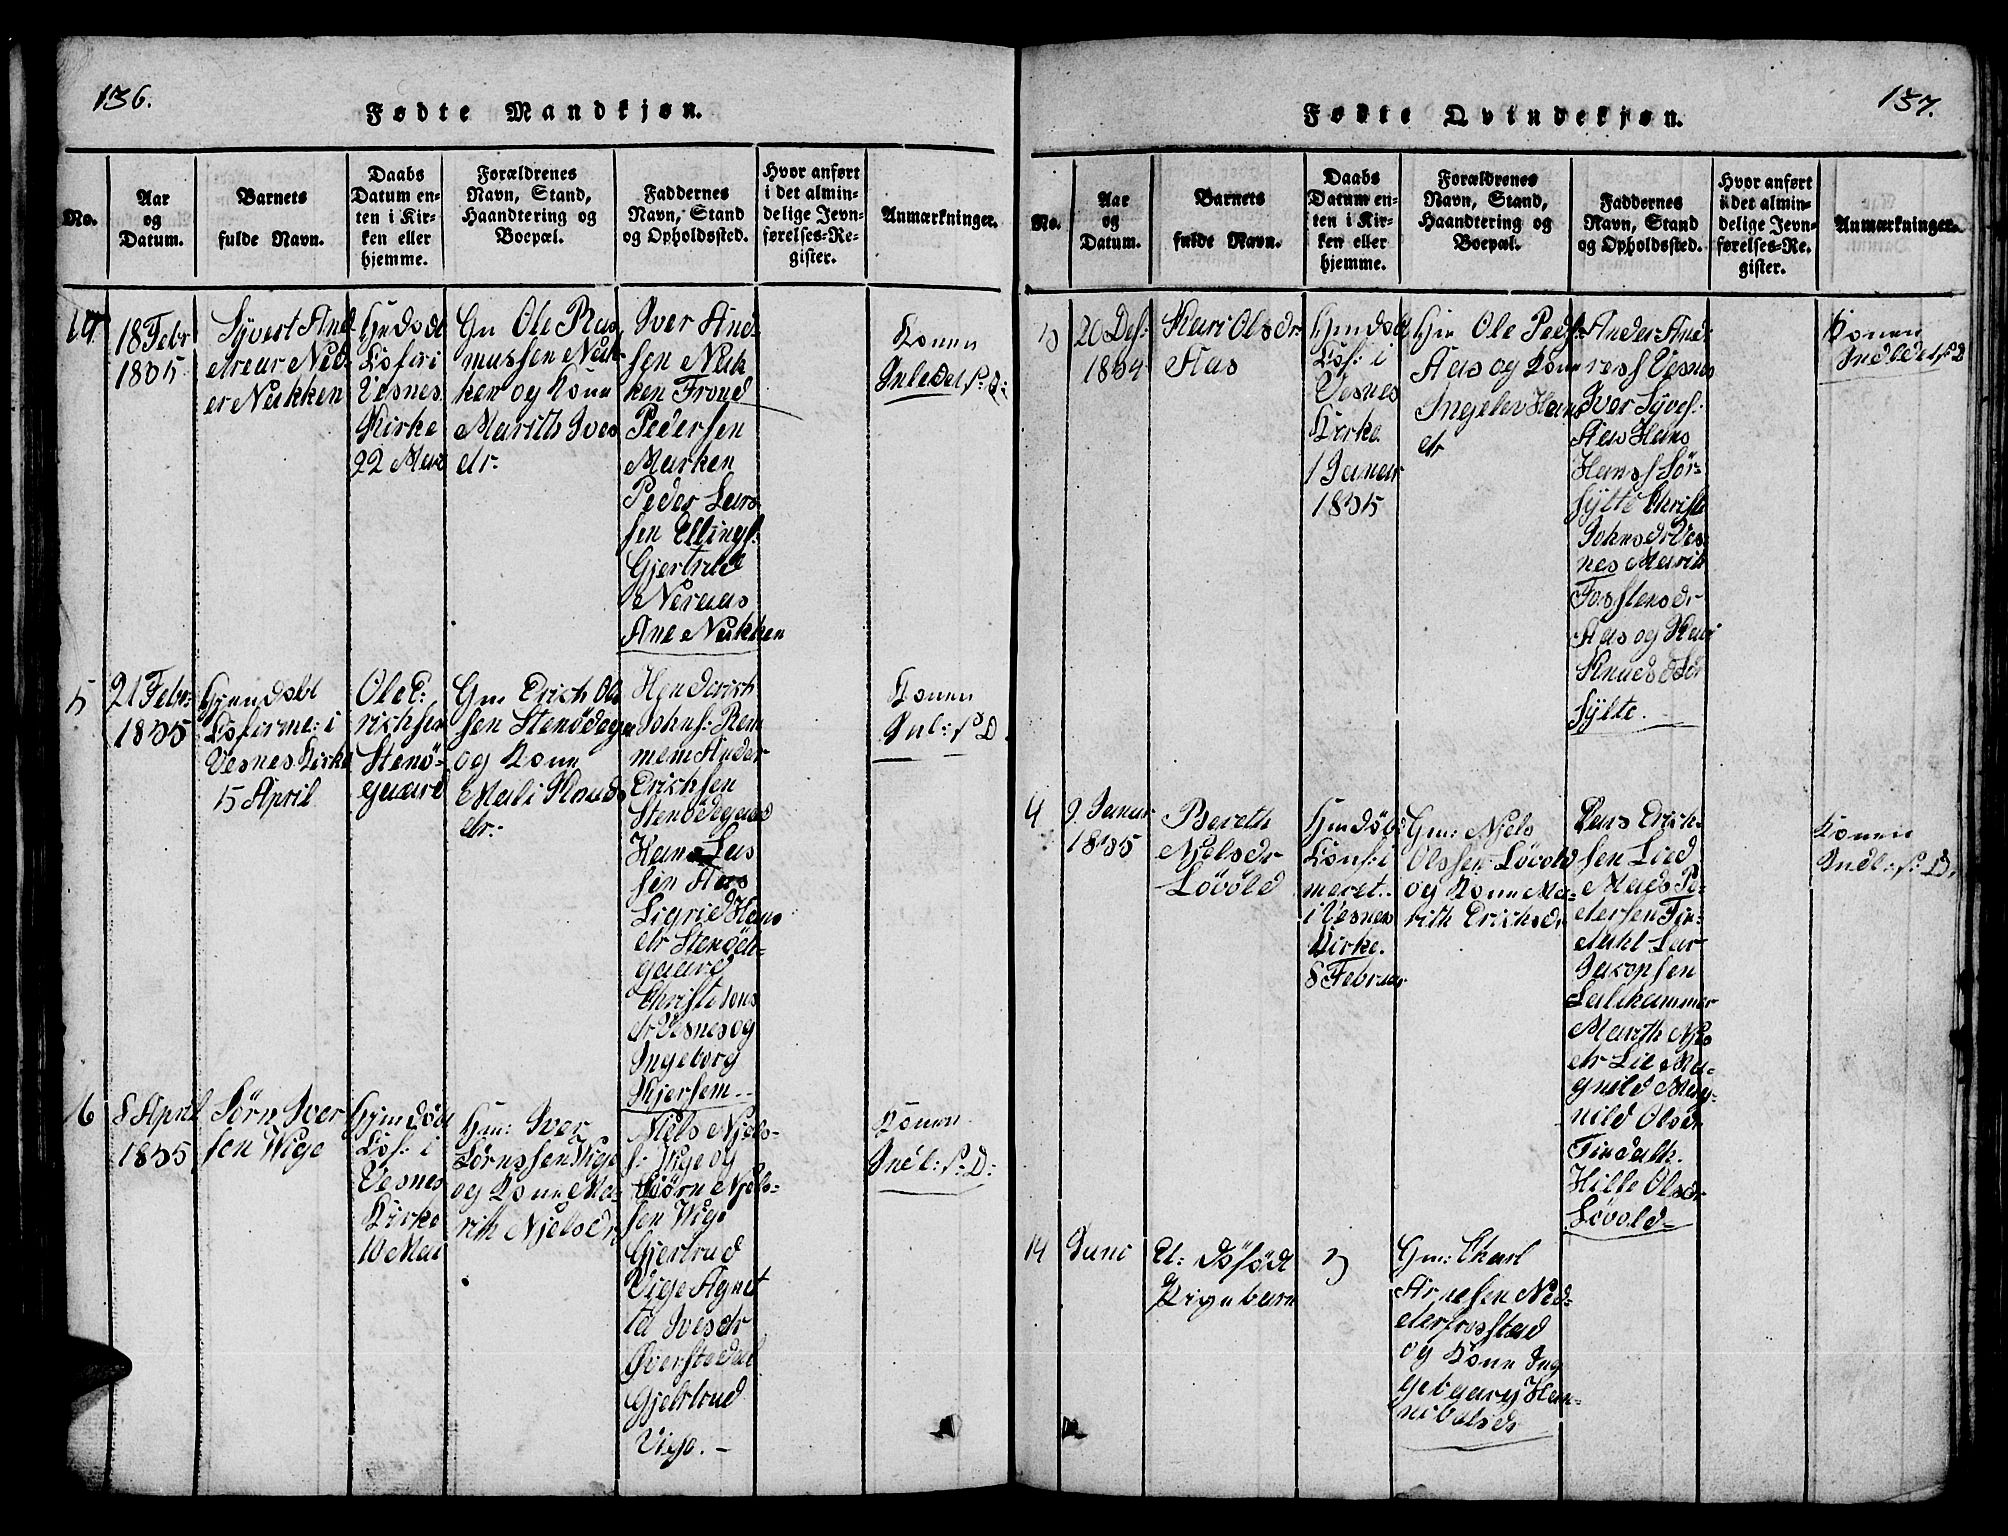 136.
Fødte Mandkjøn.
No.
Aar
og
Datum.
Barnets
fulde Navn.
Daabs
Datum en-
ten i Kir-
ken eller
hjemme.
Forældrenes
Navn, Stand,
Haandtering og
Boepæl.
Faddernes
Navn, Stand
og Opholdssted.
Hvor anført
i det almin-
delige Jevn-
førelses-Re-
gister.
Anmærkninger.
18 Febr
1835
Syvert And
er Nukken
i
Vesnes
Kirke
22 Mars
Gm Ole Ras
mussen Nuk-
ken og Kone
Marith Ives
dr.
Iver And
sen Nuk
ken Trond
Pedersen
Marken
Peder Lars
sen Ellingf:
Gjertrud
Neraas
Ane Nukken
Konen
Inledet s: D:
5
21 Febr:
1835
Hjemdøbt
i
Vesnes Kirke
15 April
Ole E:
richsen
Stenø-
gaard
Gm Erich Ole
sen Stenødega
og Kone
Mali Knuds
dr.
Henderich
Johns: Rem
mem Ander
Erichsen
Stenødegaard
Hans Las
sen Aas
Sigrid Hans
dr Stenøde-
gaard
Christe Jons
dr Vesnes og
Ingeborg
Kjersem.
Konen
Inl: s: D.
6
8 April
1835
Sørn Iver
sen Wige
Hjemdøbt
Cof: i
Vesnes
Kirke
10 Mai
Gm: Iver
Sørnssen Wige
og Kone Ma-
rith Njelsdr
Niels Njels-
s: Wige og
Sørn Njels-
sen Wige
Gjertrud
Vige Agnet
ta Ivesdr
Øverstedal
Gjelstrud
Vige.
Konen
Indl: s: D:
137.
Fødte Qvindekjøn.
No.
Aar
og
Datum.
Barnets
fulde Navn.
Daabs
Datum en-
ten i Kir-
ken eller
hjemme.
Forældrenes
Navn, Stand,
Haandtering og
Boepæl.
Faddernes
Navn, Stand
og Opholdssted.
Hvor anført
i det almin-
delige Jevn-
førelses-Re-
gister.
Anmærkninger.
3
20 Des:
1834
Kari Olsdr
Aas
Hjemdøbt
Cof: i
Vesnes
Kirke
1 Januar
1835
Gm Ole Peds
Aas og Kone
Ingelev Hans
dr
Ander And
ress Vesnes
Iver Syves:
Aas Hans
Hanss Sør-
sylte Christe
Johnsdr Ves
nes Marith
Torstensdr
Aas og Kari
Knudsdr Sør
Sylte.
Konen
Indledet s: D
4
9 Januar
1835
Bereth
Njelsdr
Løvold
Hjemdøbt
Conf: i
meret
i Vesnes
Kirke.
8 Februar
Gm: Njels
Olssen Løvold
og Kone Ma-
rith Erichsdr
Jens Erich-
sen Lied
Mads Pe-
dersen Tin-
dahl Lar
Jacopsen
Salthammer
Marith Njls
dr Lie Ra-
gnild Mag-
nild Olsdr
Tindalh.
Hille Olsdr
Løvold
Konen
Indl: s: D.
14
Juni
Et Døfød
Pigebarn
Gm: Charl
Arnesen Ned-
derfrostad
og Kone Ing
gebaarg Han-
nibalsdr